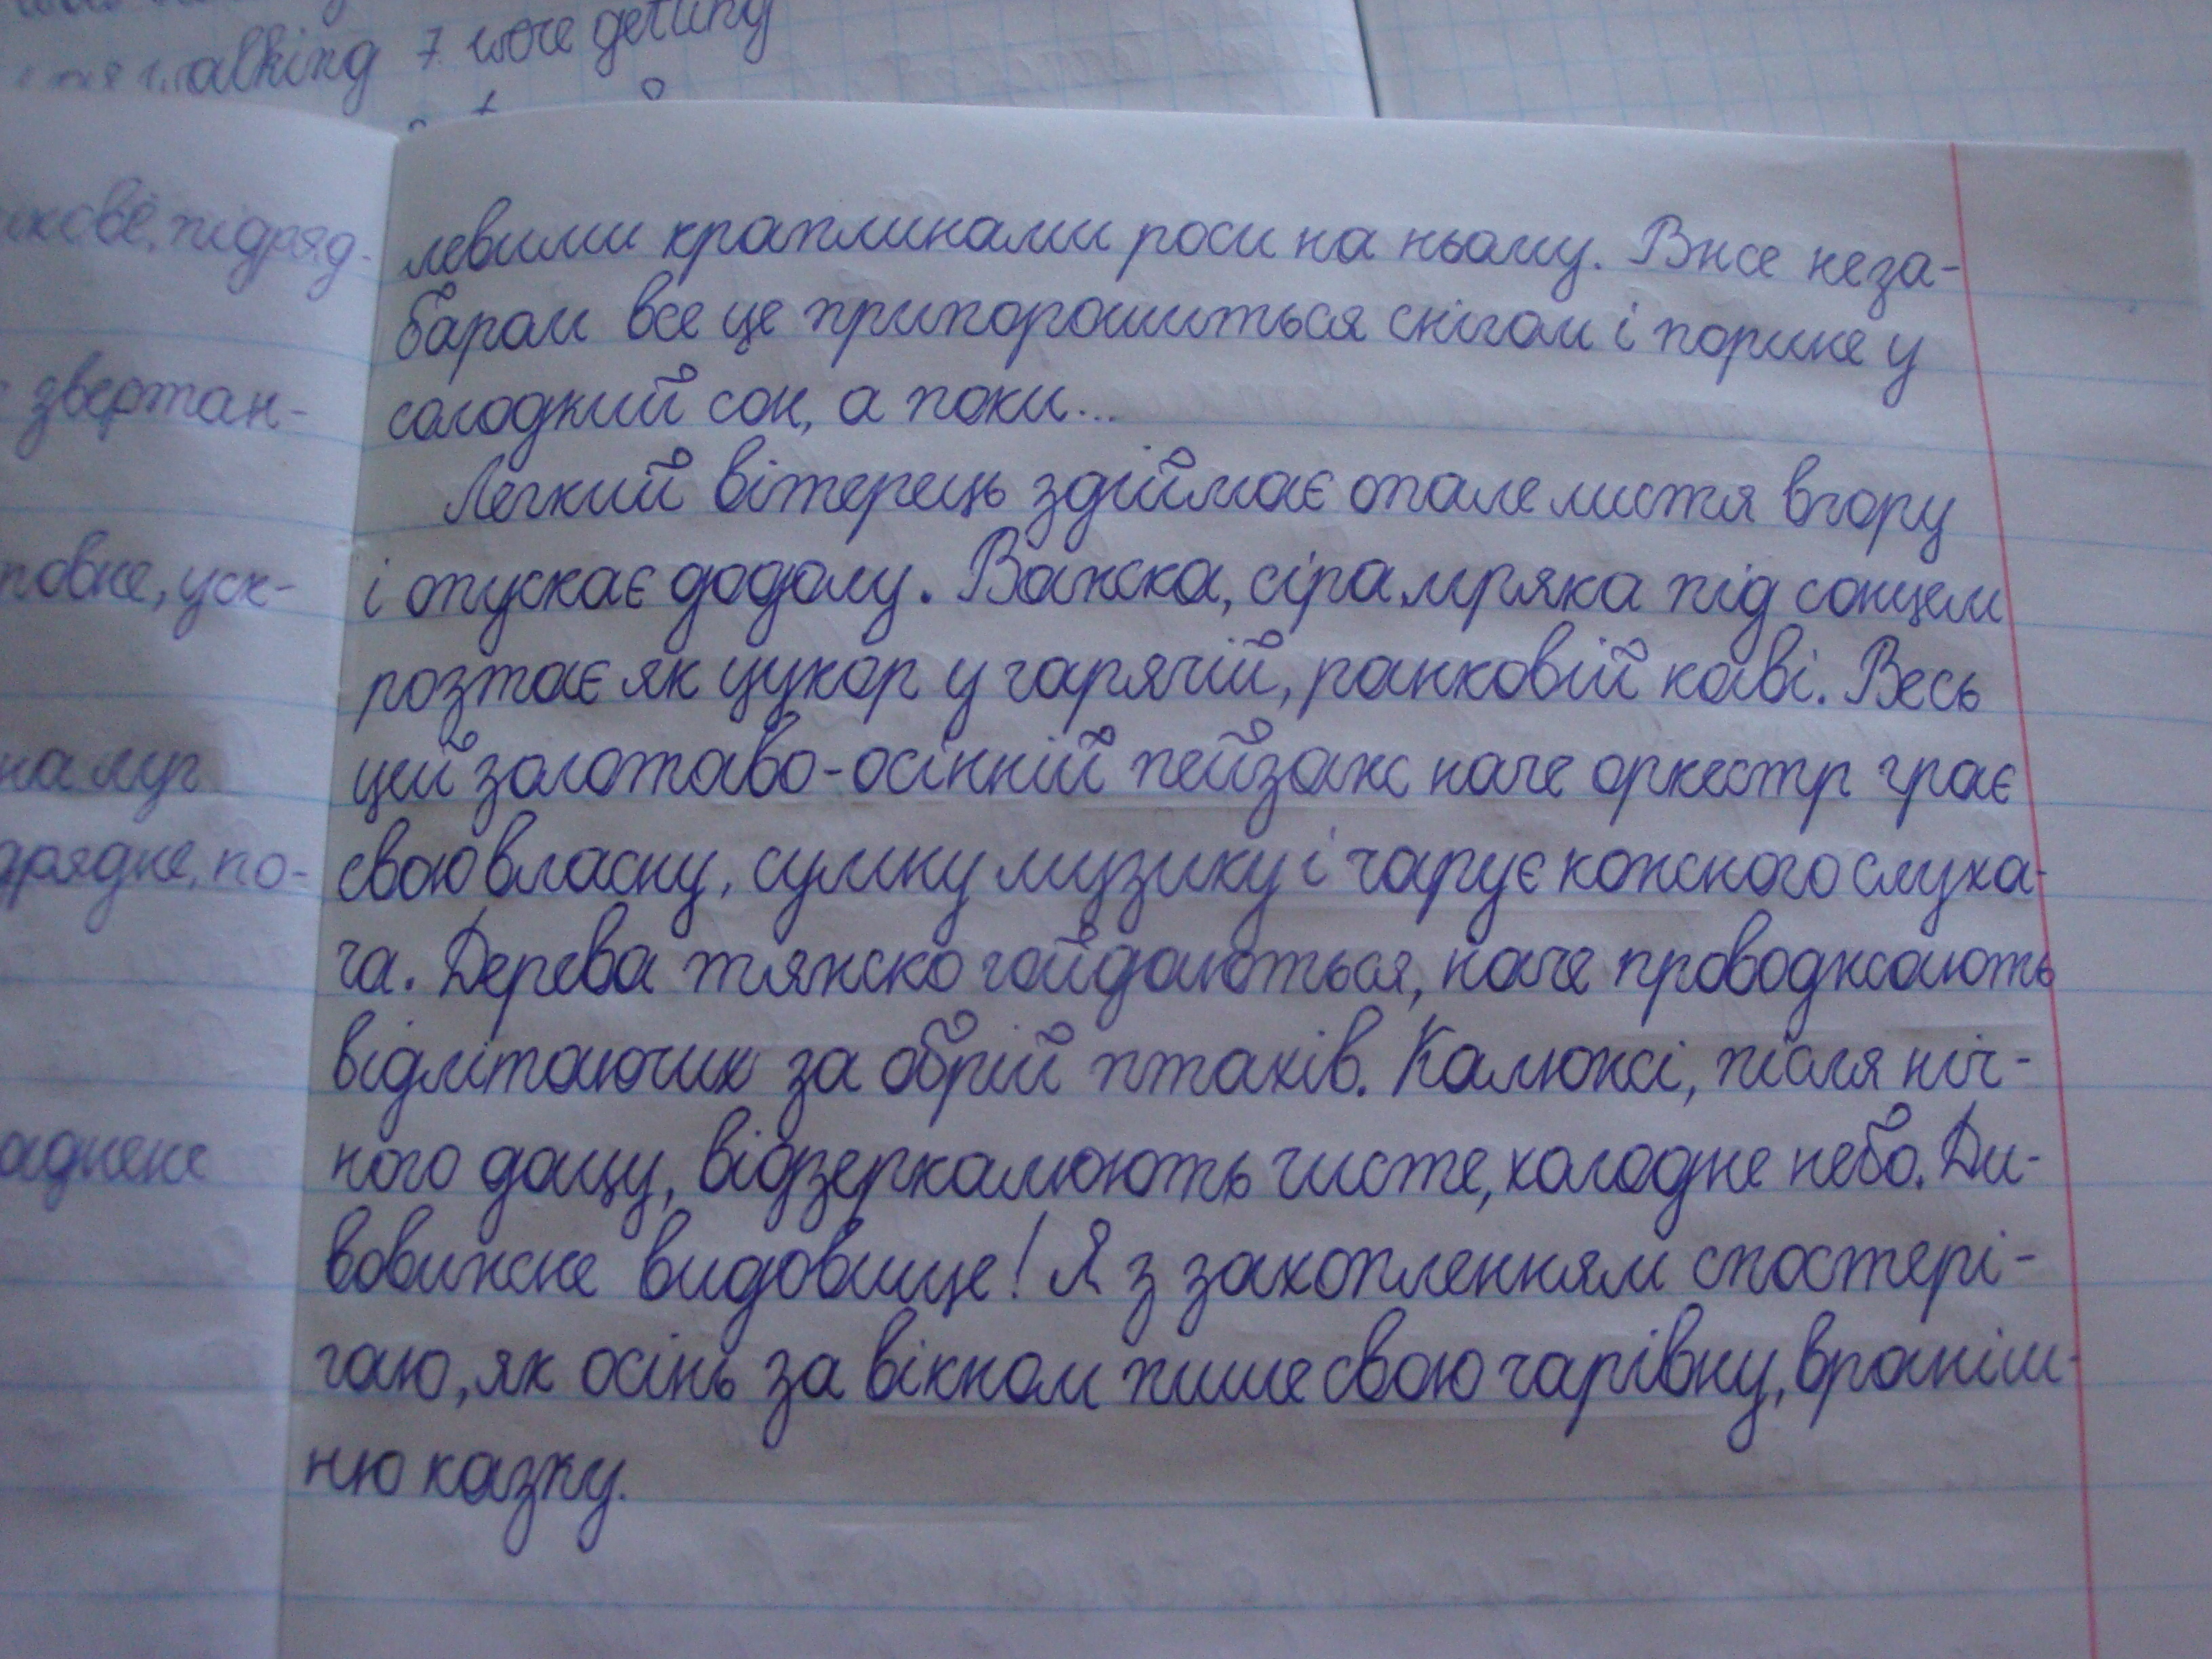 walking 7. were getting
підряд-
звертан-
повне, уск-
на луг
дрядне, по-
левими краплинами роси на ньому. Вже неза-
баром все це припорошиться снігом і порине у
солодкий сон, а поки...
Легкий вітерець здіймає опале листя вгору
і опускає додолу. Важка, сіра мряка під сонцем
розтає як цукор у гарячій, ранковій каві. Весь
цей золотаво-осінній пейзаж наче оркестр грає
свою власну, сумну музику і чарує кожного слуха-
ча. Дерева тяжко гойдаються, наче проводжають
відлітаючих за обрій птахів. Калюжі, після ніч-
ного дощу, відзеркалюють чисте, холодне небо. Ди-
вовижне видовище! Я з захопленням спостері-
гаю, як осінь за вікном пише свою чарівну, враніш-
ню казку.